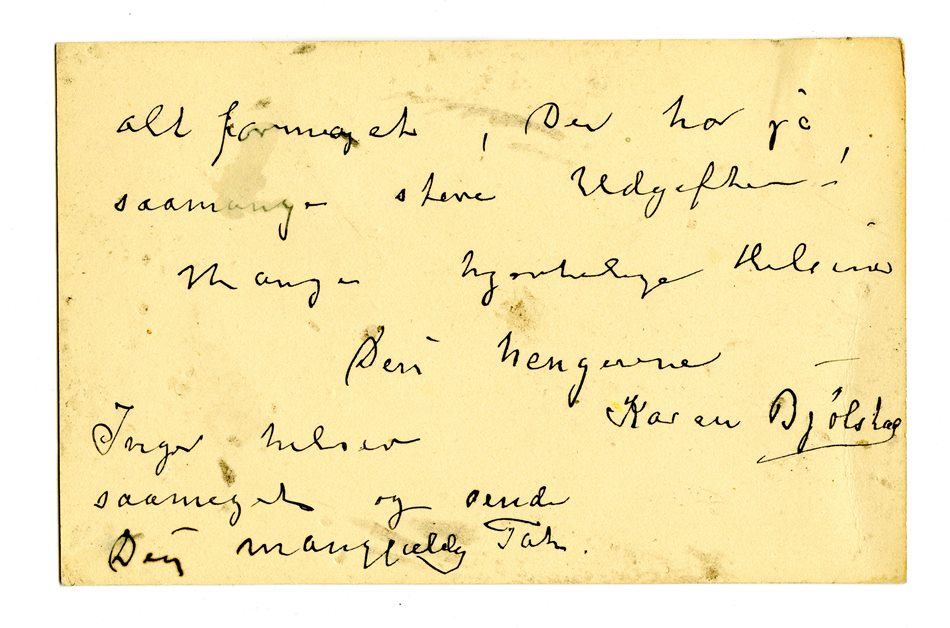 alt formeget, Der har jo
saamange store Udgifter!
Mange hjertelige Hilsener
Deres hengivne
Karen Bjölstad
Inger hilser
saameget og sender
Dem mangfoldig Tak.